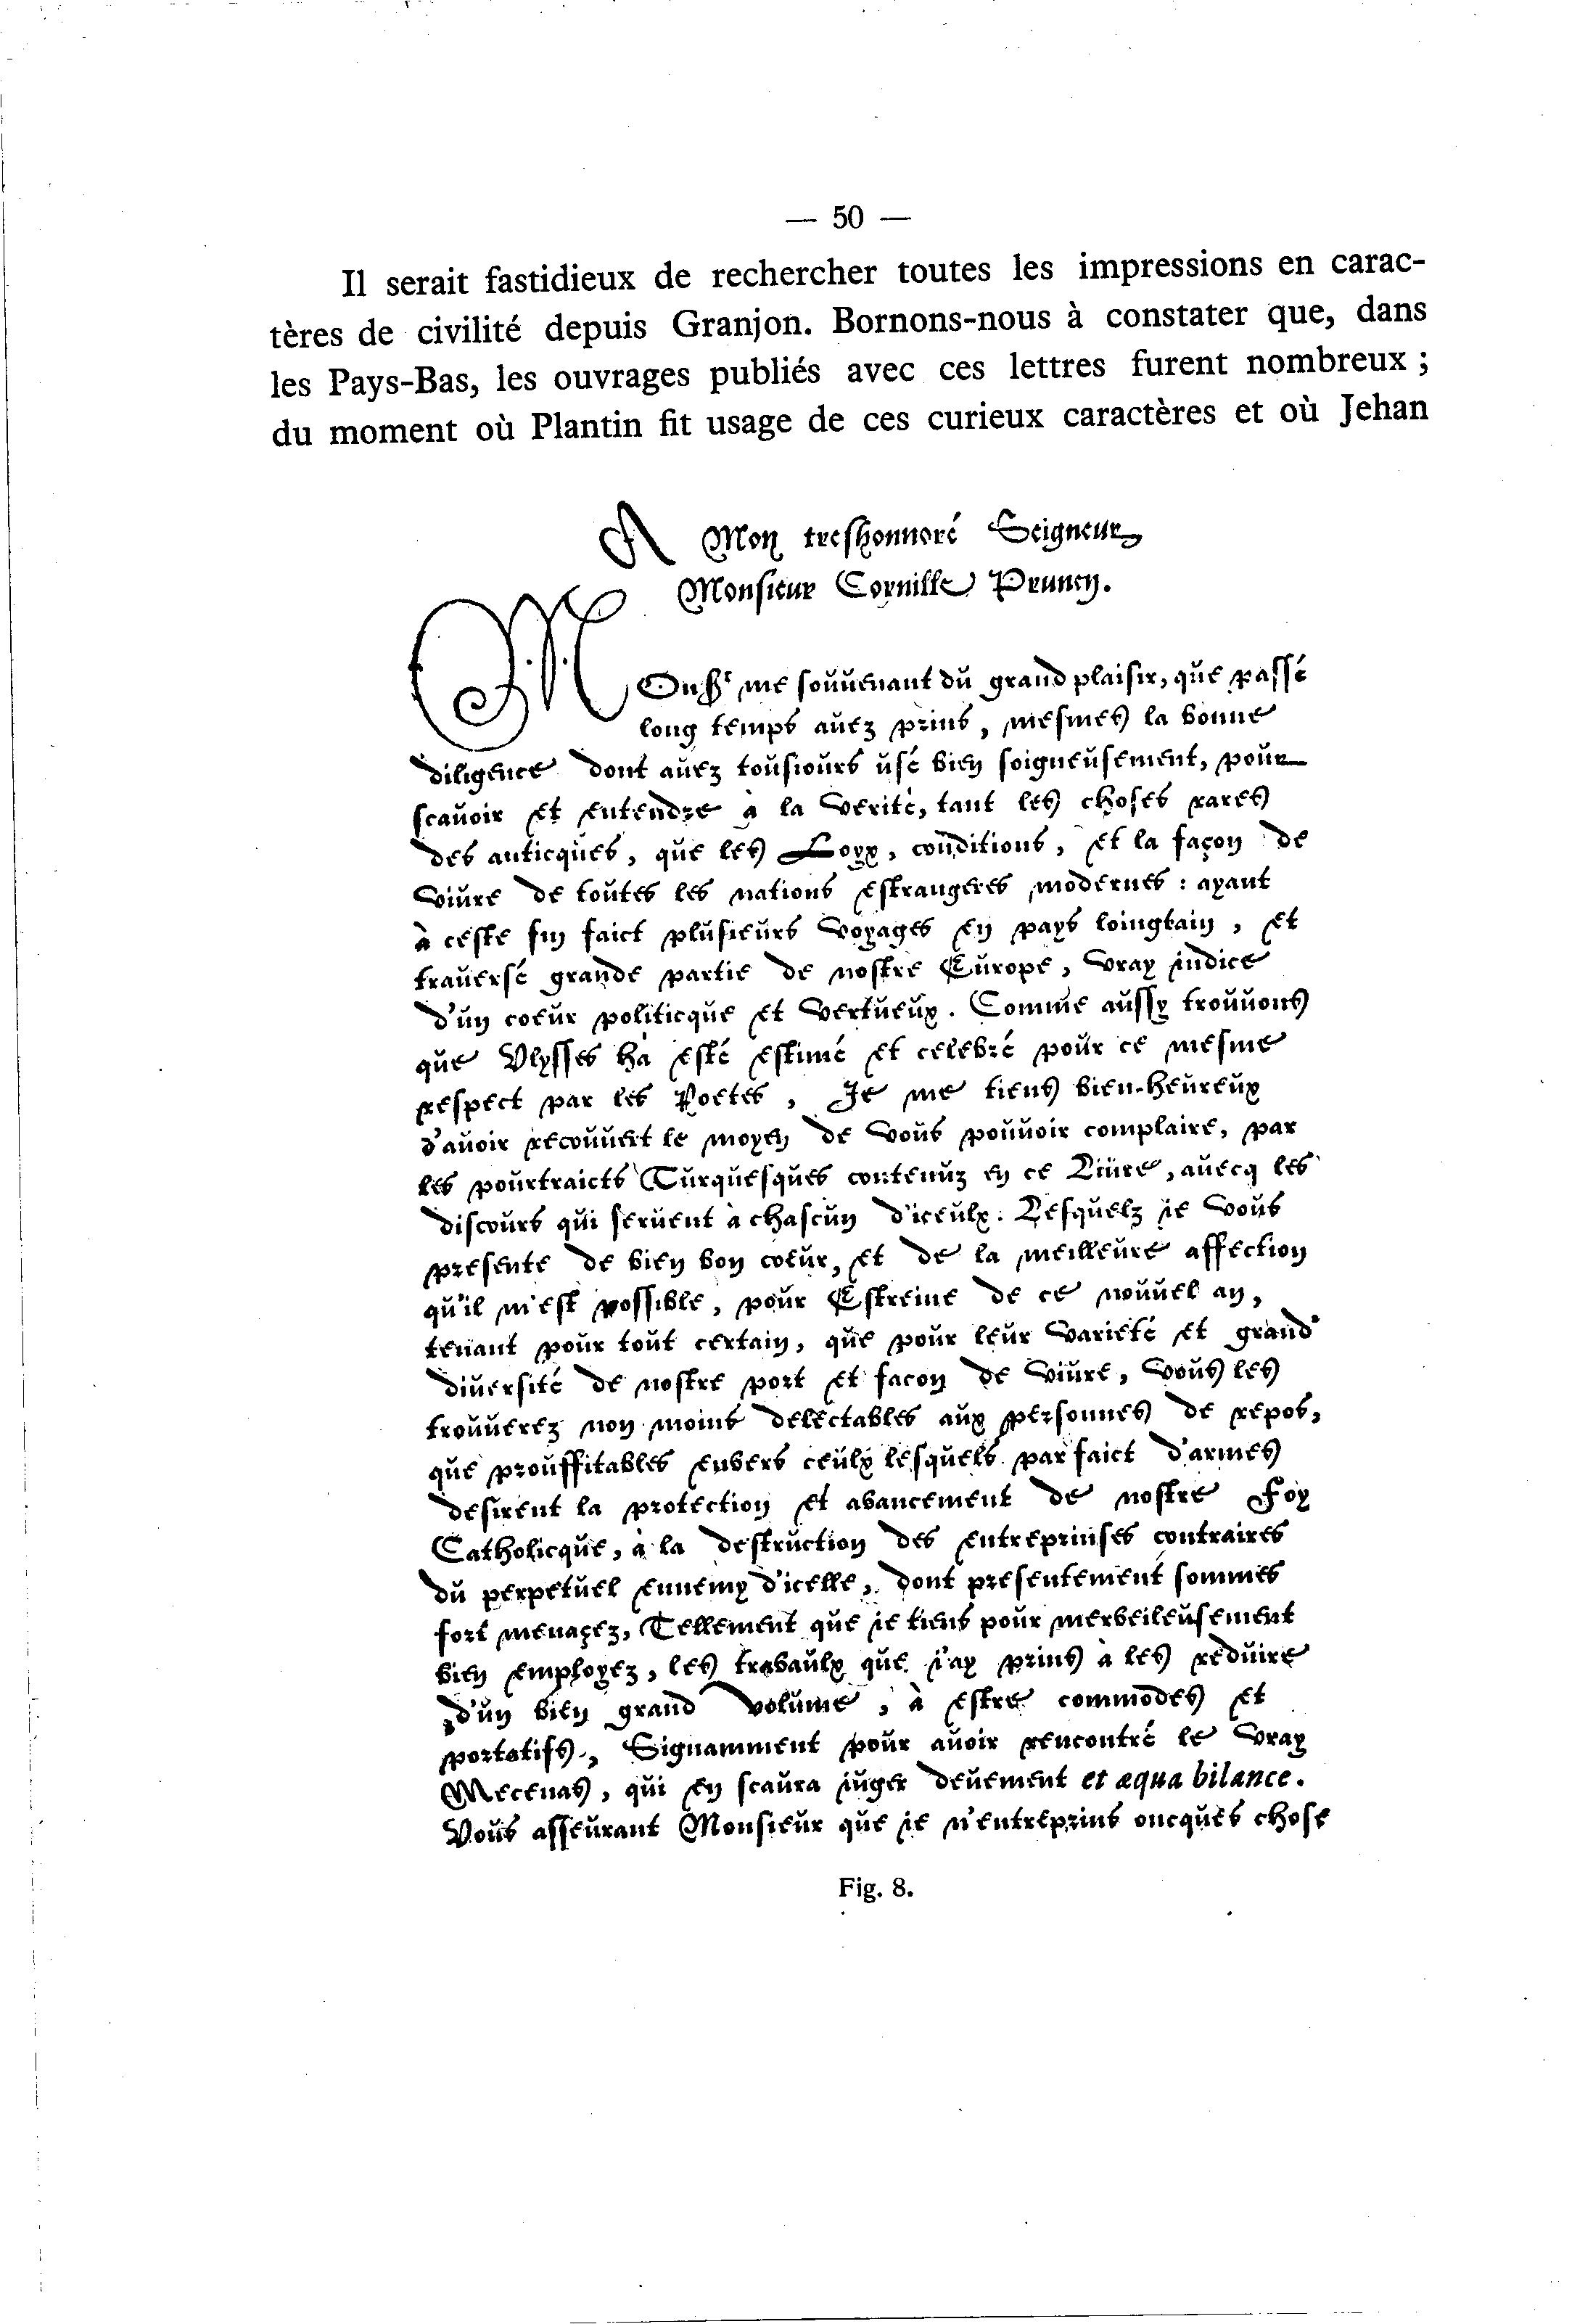 — 50 —
Il serait fastidieux de rechercher toutes les impressions en carac-
tères de civilité depuis Granjon. Bornons-nous à constater que, dans
les Pays-Bas, les ouvrages publiés avec ces lettres furent nombreux ;
du moment où Plantin fit usage de ces curieux caractères et où Jehan
A Mon treshonnoré Seigneur
Monsieur Cornille Pruney.
MOnsr me souuenant du grand plaisir, que passé
long temps auez prins, mesmes la bonne
diligence dont auez tousiours usé bien soigneusement, pour
scauoir et entendre à la verité, tant les choses rares
des anticques, que les Loyx, conditions, et la façon de
viure de toutes les nations estrangeres modernes : ayant
à ceste fin faict plusieurs voyages en pays loingtain, et
trauersé grande partie de nostre Europe, vray indice
d'un coeur politicque et vertueux. Comme aussy trouuons
que Vlysses hà esté estimé et celebré pour ce mesme
respect par les Poetes, Je me tiens bien-heureux
d'auoir recouuert le moyen de vous pouuoir complaire, par
les pourtraicts Turquesques contenuz en ce Liure, auecq les
discours qui seruent à chascun d'iceulx. Lesquelz ie vous
presente de bien bon coeur, et de la meilleure affection
qu'il m'est possible, pour Estreine de ce nouuel an,
tenant pour tout certain, que pour leur varieté et grand
diuersité de nostre port et facon de viure, vous les
trouuerez non moins delectables aux personnes de repos,
que prouffitables enuers ceulx lesquels par faict d'armes
desirent la protection et abancement de nostre Foy
Catholicque, à la destruction des entreprinses contraires
du perpetuel ennemy d'icelle, dont presentement sommes
fort menaçez, Tellement que ie tiens pour merbeileusement
bien employez, les trabaulx que i'ay prins à les reduire
d'un bien grand volume, à estre commodes et
portatifs, Signamment pour auoir rencontré le vray
Mecenas, qui en scaura iuger deuement et æqua bilance.
Vous asseurant Monsieur que ie n'entreprins oncques chose
Fig. 8.